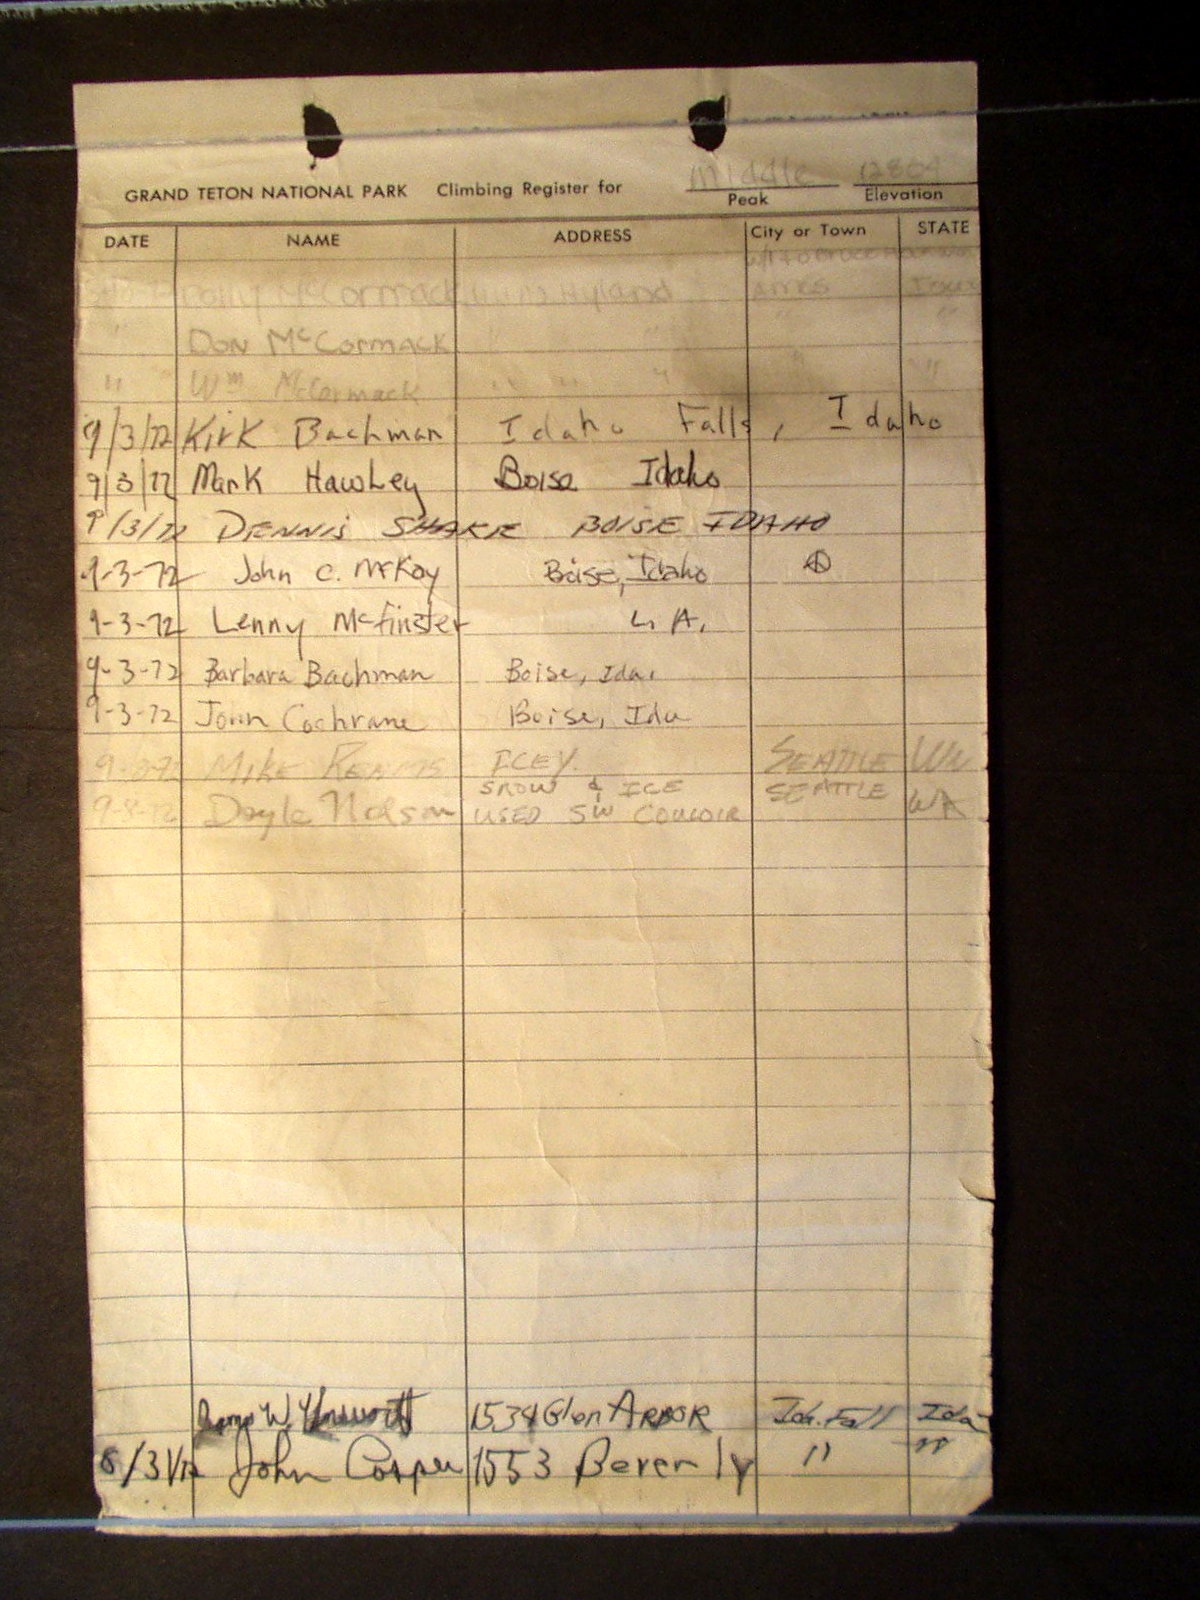 Middle 12804
GRAND TETON NATIONAL PARK Climbing Register for Peak Elevation
DATE NAME ADDRESS City or Town STATE
McCormack Hyland Ames Iowa
" Don McCormack " " " "
" " Wm McCormack " " " " "
9/3/72 Kirk Bachman Idaho Falls, Idaho
9/3/72 Mark Hawley Boise Idaho
9/3/72 DENNIS BOISE IDAHO
9-3-72 John C. McKoy Boise, Idaho
9-3-72 Lenny McFinster L.A.
9-3-72 Barbara Bachman Boise, Ida.
9-3-72 John Cochrane Boise, Ida
Mike ICEY. SEATTLE WN
SNOW & ICE SEATTLE
9-8-72 Doyle Nelson USED SW COULOIR WA
W. 1534 Glen ARBOR Ida. Fall Ida
8/31/72 John Cosper 1553 Beverly " "